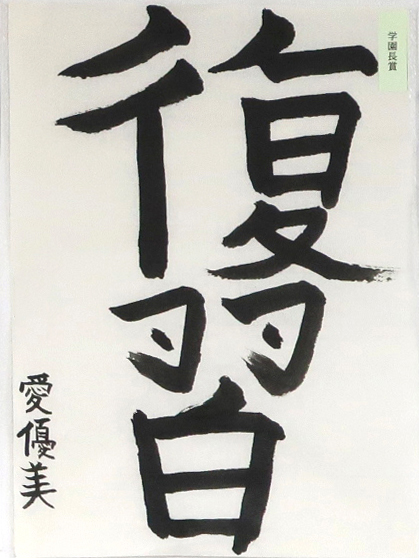 学園長賞
復習
愛優美